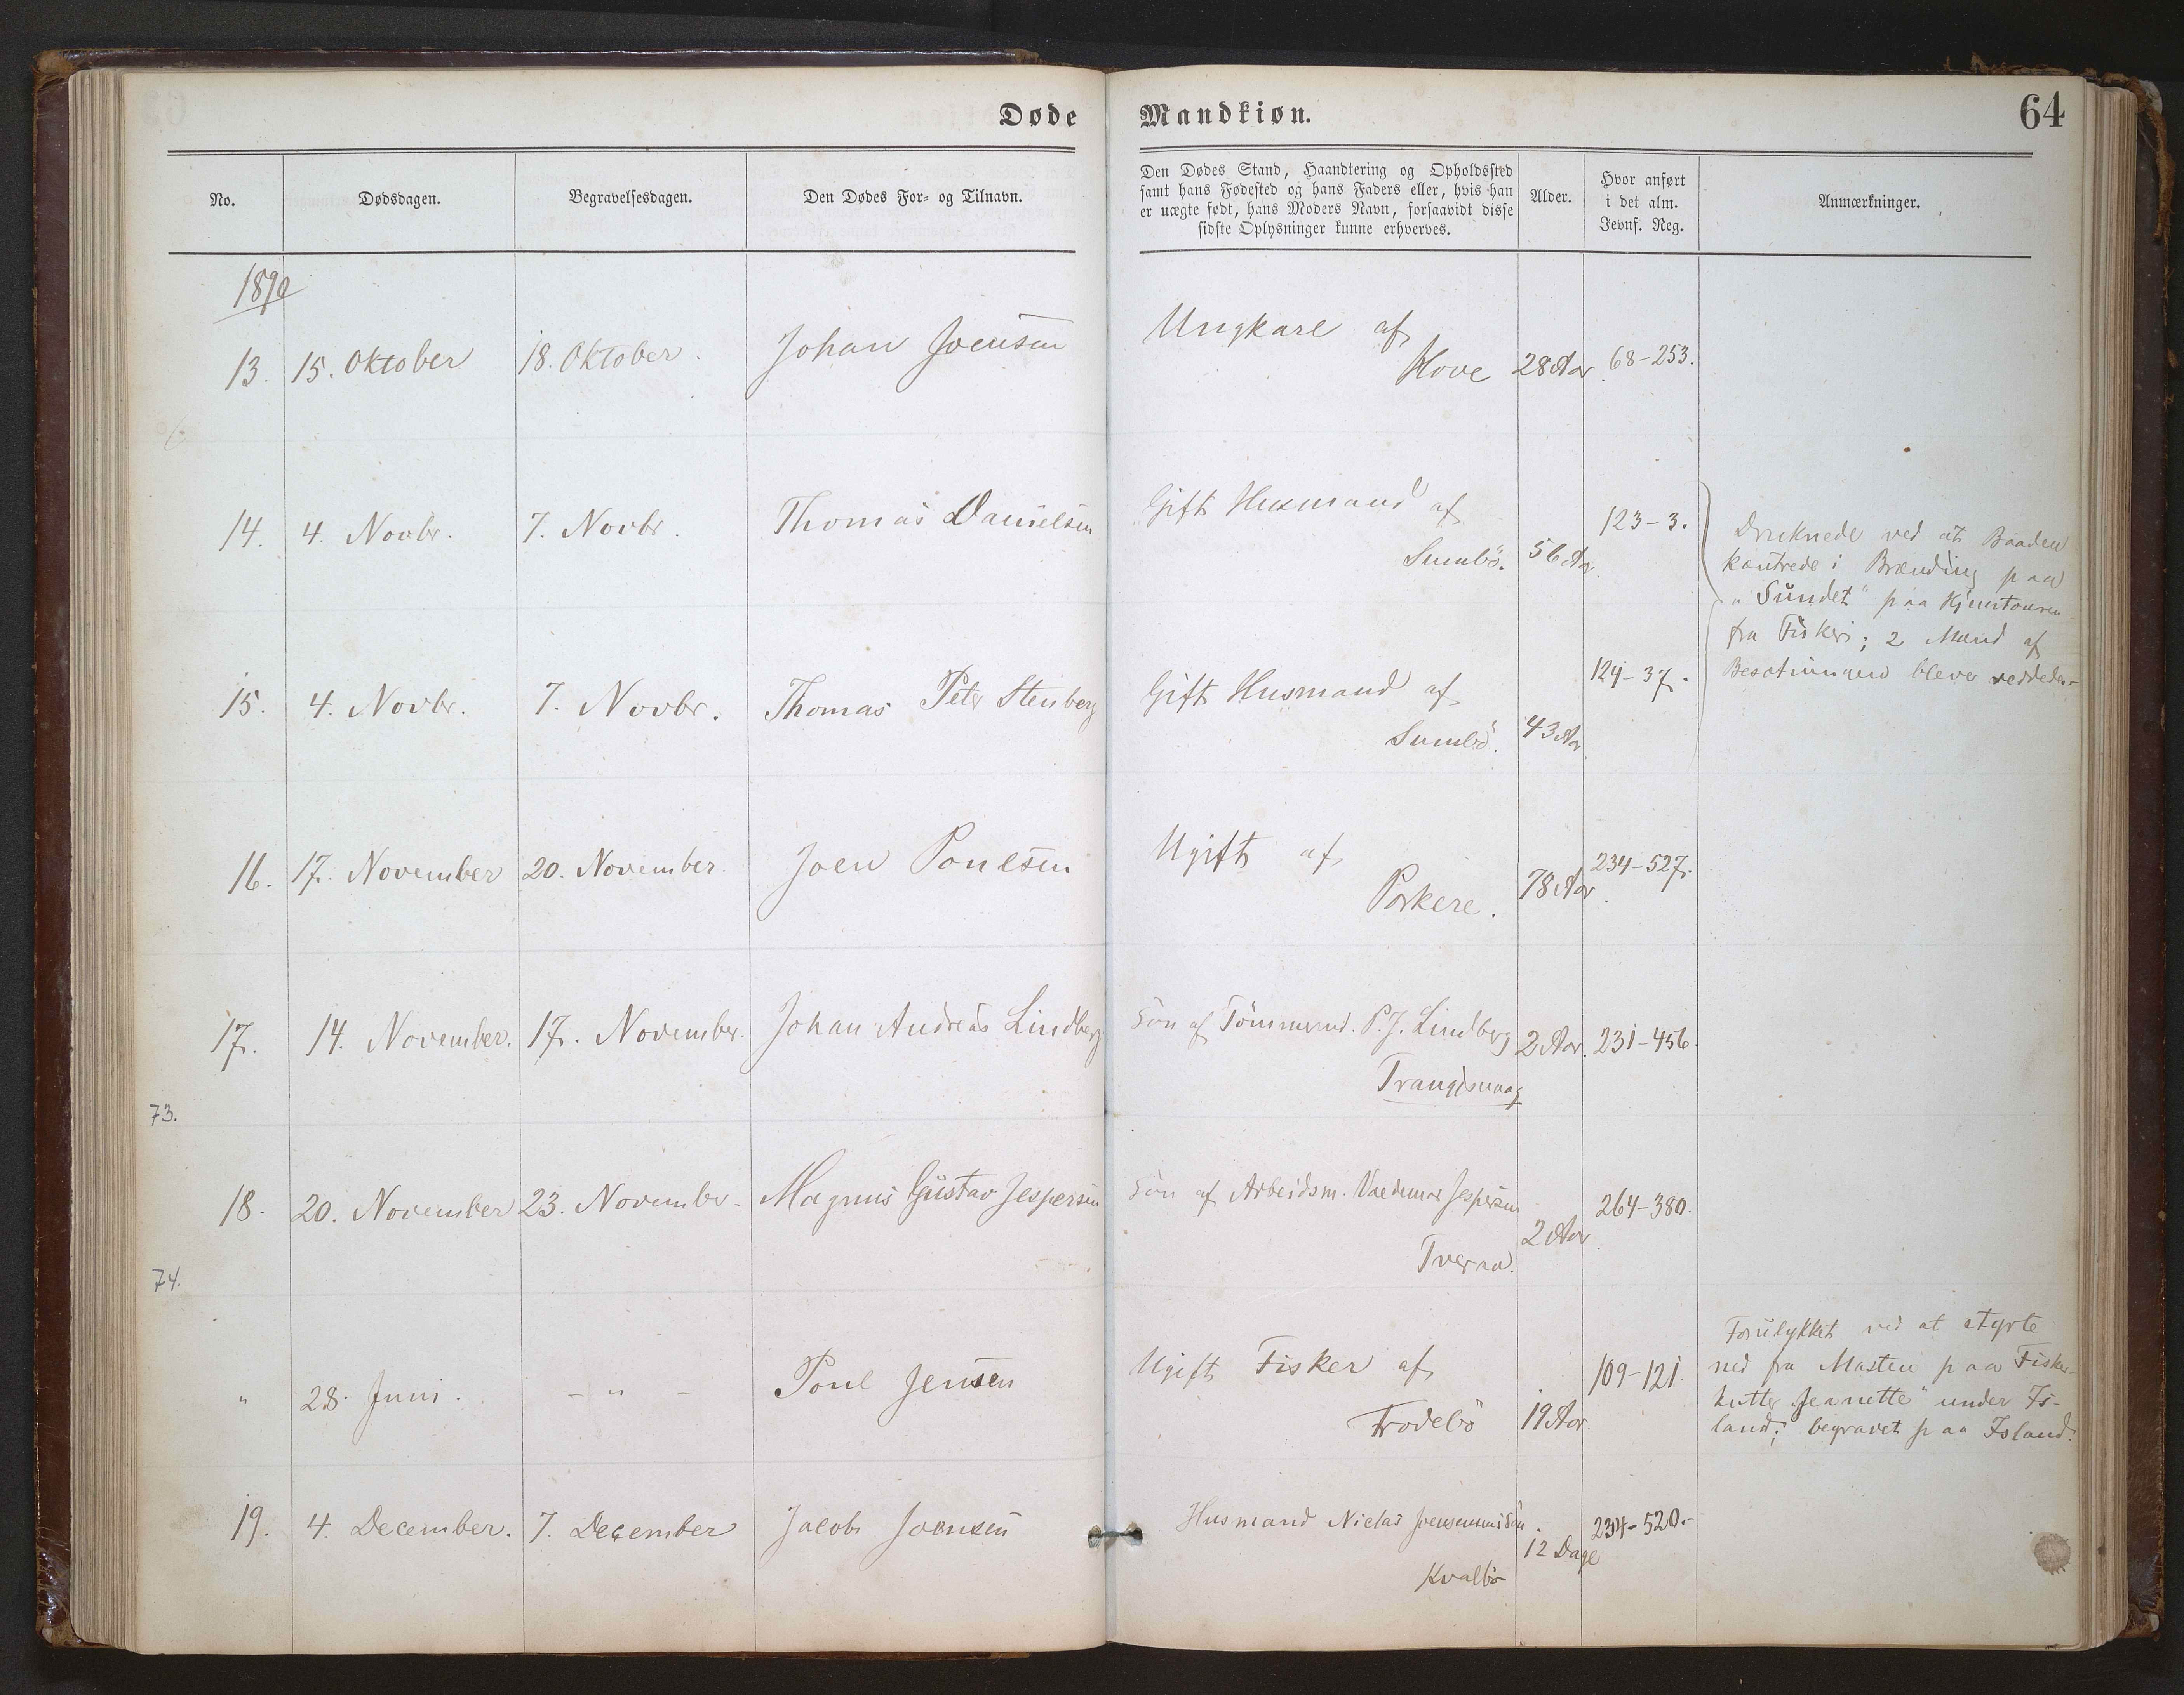 Døde Mandkiøn. 64
No. Dødsdagen. Begravelsesdagen. Den Dødes For- og Tilnavn.
Den Dødes Stand, Haandtering og Opholdssted
samt hans Fødested og hans Faders eller, hvis han
er uægte født, hans Moders Navn, forsaavidt disse
sidste Oplysninger kunne erhverves.
Alder.
Hvor anført
i det alm.
Jevnf. Reg.
Anmærkninger.
1890
13. 15. Oktober 18. Oktober. Johan Joensen Ungkarl af
Hove 28 Aar 68-253.
14. 4. Novbr. 7. Novbr. Thomas Danielsen Gift Husmand af
Sumbö. 56 Aar. 123-3.
Druknede ved at Baaden
kæntrede i Brænding paa
"Sundet" paa Hjemtouren
fra Fiskeri; 2 Mand af
Besætningen bleve reddede.
15. 4. Novbr. 7. Novbr. Thomas Peter Stenberg Gift Husmand af
Sumbö. 43 Aar 124-37.
16. 17. November 20. November. Joen Poulsen Ugift af
Porkere. 78 Aar. 234-527.
17. 14. November. 17. November. Johan Andreas Lindberg Sön af Tömmermd. P.J. Lindberg
Trangisvaag 2 Aar. 231-456.
73.
18. 20. November 23. November. Magnus Gustav Jespersen Sön af Arbeidsm. Valdemar Jespersen
Tveraa. 2 Aar. 264-380.
74.
" 28. Juni. - " - Poul Jensen Ugift Fisker af
Frodebö 19 Aar. 109-121.
Forulykket ved at styrte
ned fra Masten paa Fisker-
kutter "Jeanette" under Is-
land; begravet paa Island.
19. 4. December. 7. December Jacob Joensen Husmand Niclas Joensens Sön
Kvalbö 12 Dage 234-520.